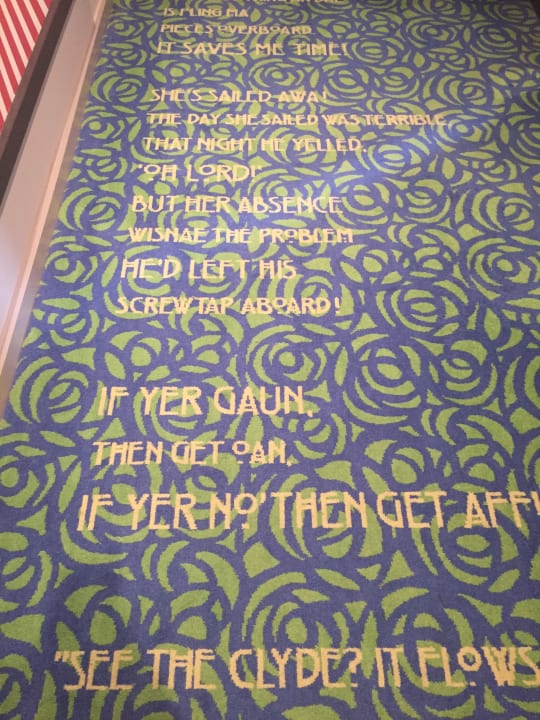 IS FLING MA
PIECES OVERBOARD.
IT SAVES ME TIME!
SHE'S SAILED AWA!
THE DAY SHE SAILED WAS TERRIBLE
THAT NIGHT HE YELLED,
'OH LORD!'
BUT HER ABSENCE
WISNAE THE PROBLEM
HE'D LEFT HIS
SCREWTAP ABOARD!
IF YER GAUN,
THEN GET OAN,
IF YER NO' THEN GET AFF!
"SEE THE CLYDE? IT FLOWS